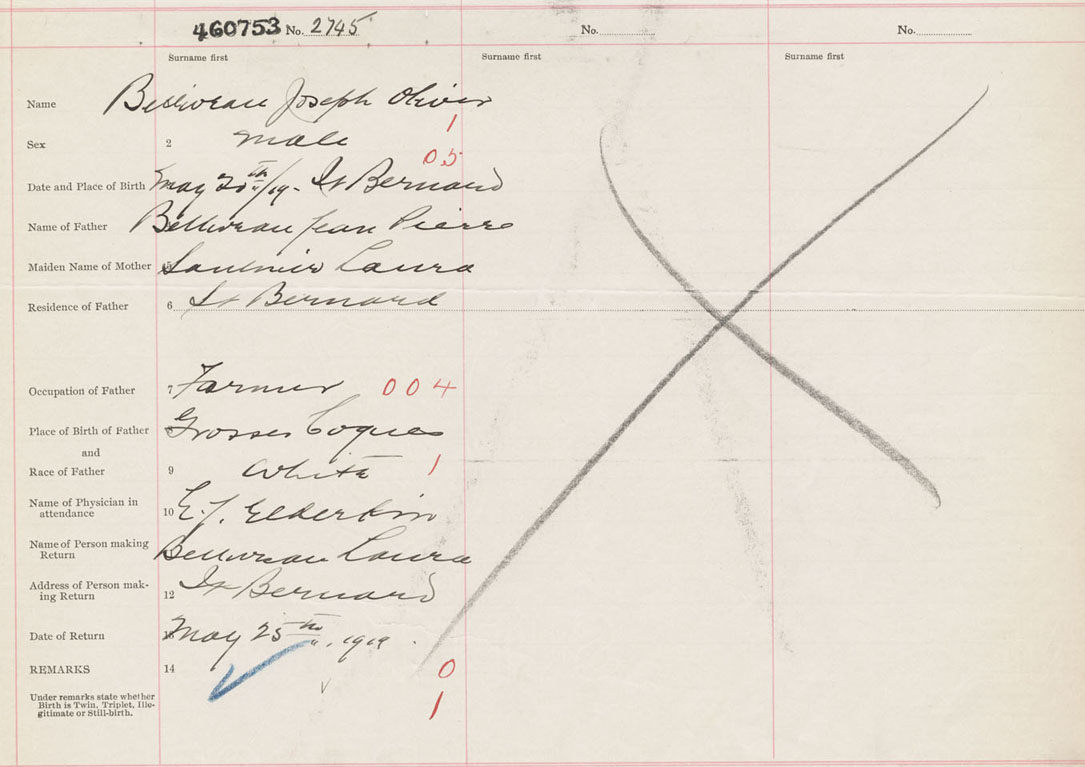 460753 No. 2745 No. No.
Surname first Surname first Surname first
Name Belliveau Joseph Oliver
1
Sex 2 Male
05
Date and Place of Birth May 20th/19 - St Bernard
Name of Father Belliveau Jean Pierre
Maiden Name of Mother Saulnier Laura
Residence of Father 6 St Bernard
Occupation of Father 7 Farmer 004
Place of Birth of Father Grosses Coques
and
Race of Father 9 White 1
Name of Physician in
attendance 10 E. J. Elderkin
Name of Person making
Return Belliveau Laura
Address of Person mak-
ing Return 12 St Bernard
Date of Return May 25th, 1919
REMARKS 14 0
Under remarks state whether
Birth is Twin, Triplet, Ille-
gitimate or Still-birth.
1